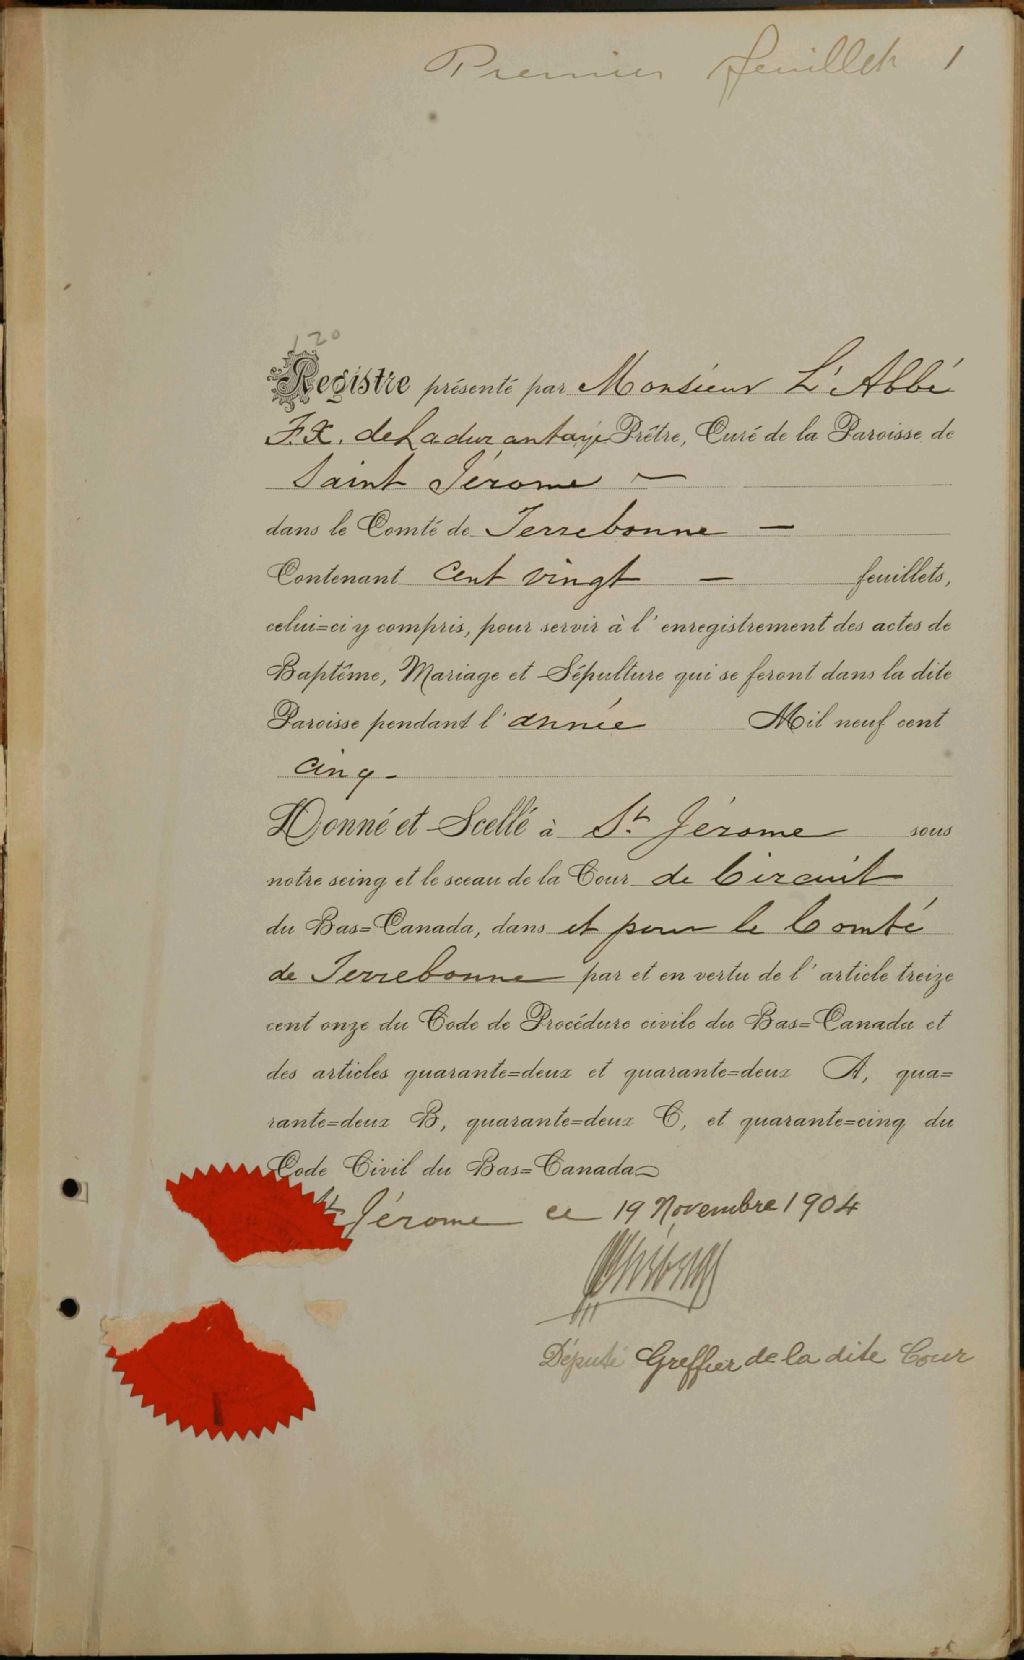 Premier feuillet 1
120
Registre présenté par Monsieur L'Abbé
F.X. de Ladurantaye Prêtre, Curé de la Paroisse de
Saint Jérome —
dans le Comté de Terrebonne —
Contenant cent vingt — feuillets,
celui=ci y compris, pour servir à l'enregistrement des actes de
Baptême, Mariage et Sépulture qui se feront dans la dite
Paroisse pendant l'année Mil neuf cent
cinq -
Donné et Scellé à St. Jérome sous
notre seing et le sceau de la Cour de Circuit
du Bas=Canada, dans et pour le Comté
de Terrebonne par et en vertu de l'article treize
cent onze du Code de Procédure civile du Bas=Canada et
des articles quarante=deux et quarante=deux A, qua=
rante=deux B, quarante=deux C, et quarante=cinq du
Code Civil du Bas=Canada
St Jérome ce 19 Novembre 1904
Député Greffier de la dite Cour